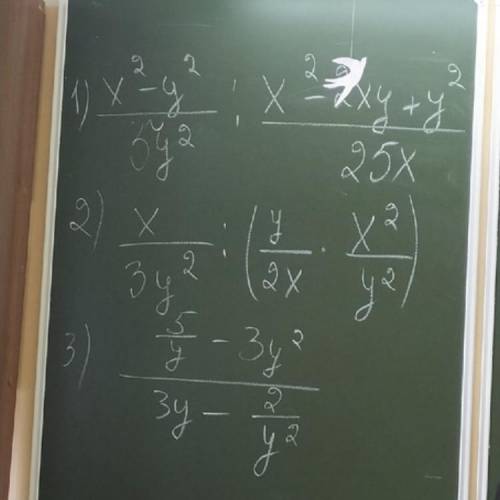 1) \frac{x^2 - y^2}{5y^2} : \frac{x^2 - 2xy + y^2}{25x}
2) \frac{x}{3y^2} : \left( \frac{y}{2x} \cdot \frac{x^2}{y^2} \right)
3) \frac{\frac{5}{y} - 3y^2}{3y - \frac{2}{y^2}}